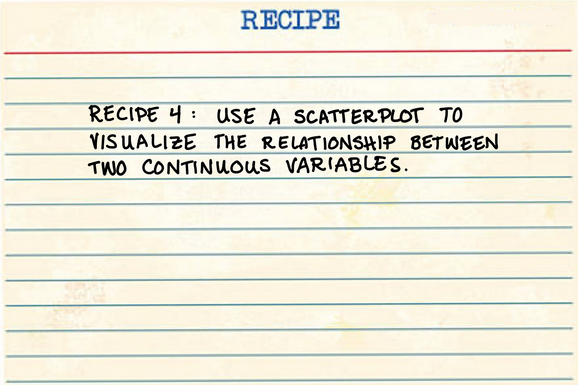 RECIPE
RECIPE 4: USE A SCATTERPLOT TO
VISUALIZE THE RELATIONSHIP BETWEEN
TWO CONTINUOUS VARIABLES.